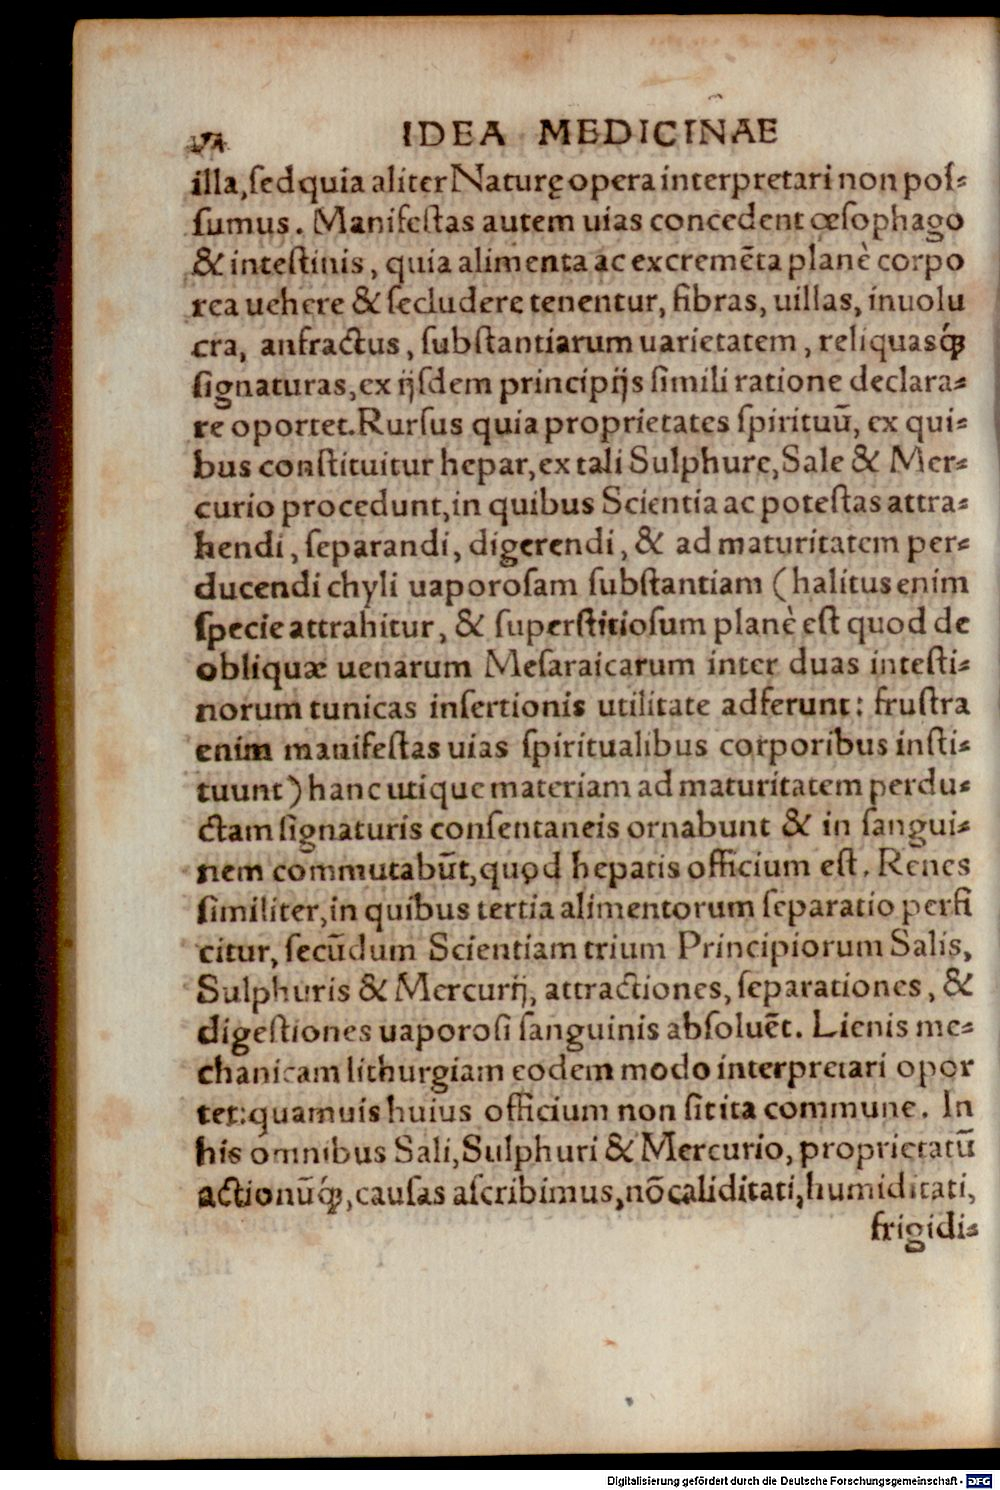 IDEA MEDICINAE
illa, ſed quia aliter Naturę opera interpretari non poſ-
ſumus. Manifeſtas autem uias concedent œſophago
& inteſtinis, quia alimenta ac excremẽta planè corpo
rea uehere & ſecludere tenentur, fibras, uillas, inuolu
cra, anfractus, ſubſtantiarum uarietatem, reliquasq́;
ſignaturas, ex ijſdem principijs ſimili ratione declara-
re oportet. Rurſus quia proprietates ſpirituũ, ex qui-
bus conſtituitur hepar, ex tali Sulphure, Sale & Mer-
curio procedunt, in quibus Scientia ac poteſtas attra-
hendi, ſeparandi, digerendi, & ad maturitatem per-
ducendi chyli uaporoſam ſubſtantiam (halitus enim
ſpecie attrahitur, & ſuperſtitioſum planè eſt quod de
obliquæ uenarum Meſaraicarum inter duas inteſti-
norum tunicas inſertionis utilitate adferunt: fruſtra
enim manifeſtas uias ſpiritualibus corporibus inſti-
tuunt) hanc utique materiam ad maturitatem perdu-
ctam ſignaturis conſentaneis ornabunt & in ſangui-
nem commutabũt, quod hepatis officium eſt. Renes
ſimiliter, in quibus tertia alimentorum ſeparatio perfi
citur, ſecũdum Scientiam trium Principiorum Salis,
Sulphuris & Mercurij, attractiones, ſeparationes, &
digeſtiones uaporoſi ſanguinis abſoluẽt. Lienis me-
chanicam lithurgiam eodem modo interpretari opor
tet: quamuis huius officium non ſit ita commune. In
his omnibus Sali, Sulphuri & Mercurio, proprietatũ
actionũq́;, cauſas aſcribimus, nõ caliditati, humiditati,
frigidi-
Digitalisierung gefördert durch die Deutsche Forschungsgemeinschaft - DFG